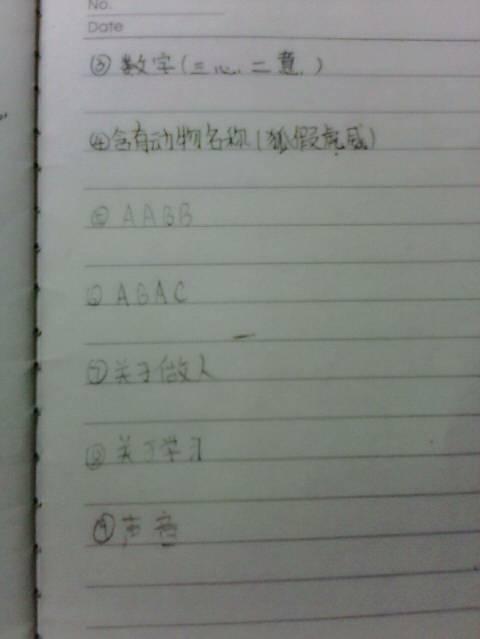 No.
Date
③ 数字(三心二意)
④含有动物名称(狐假虎威)
⑤ AABB
⑥ ABAC
⑦关于做人
⑧ 关于学习
⑨ 声音